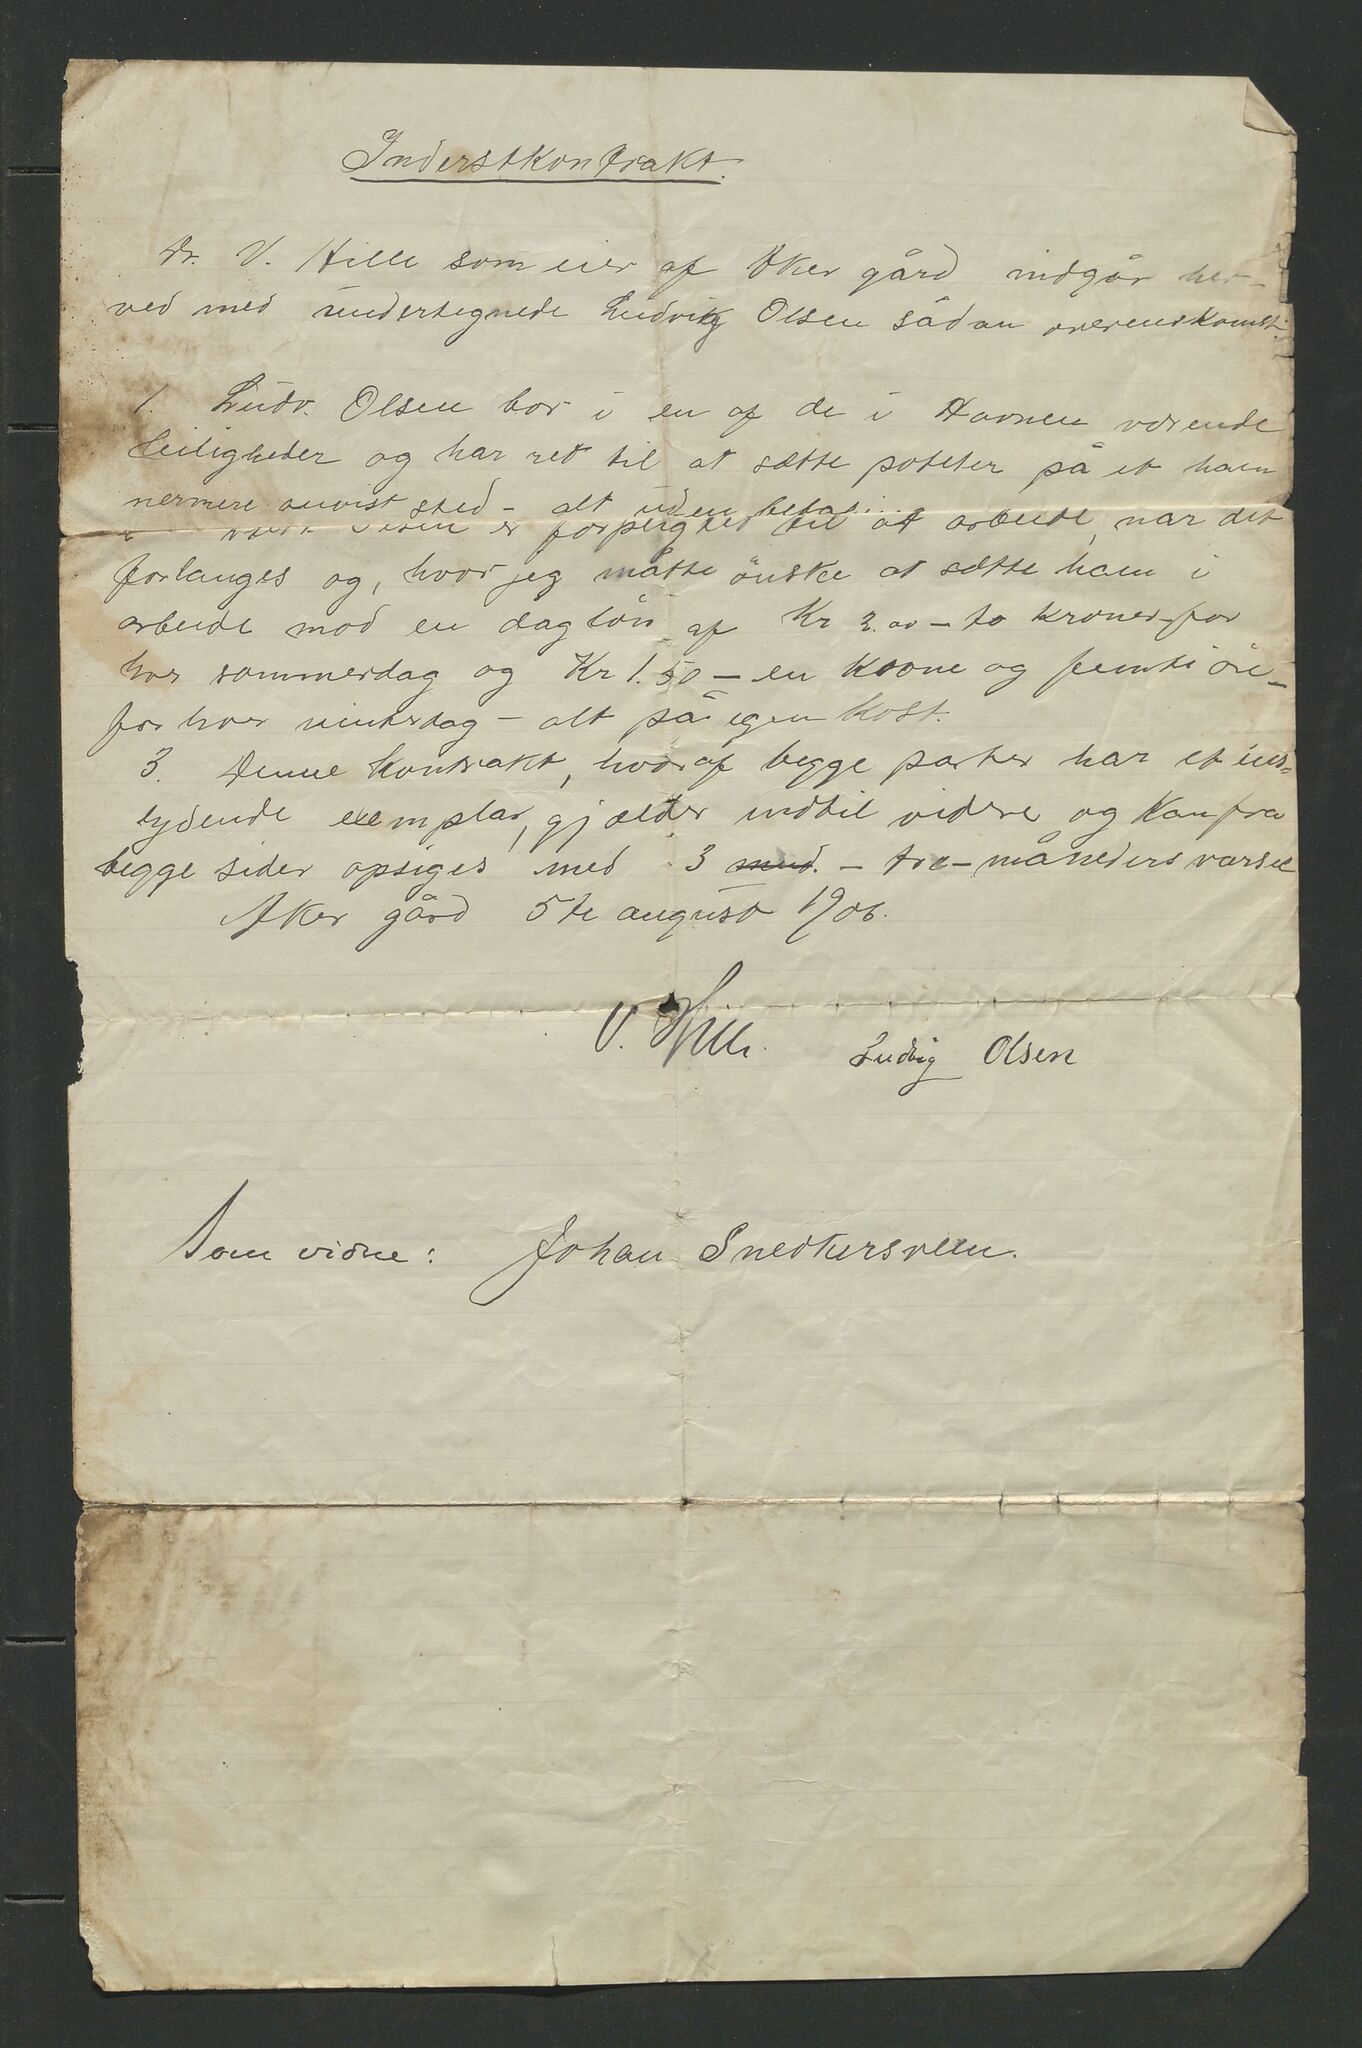 Inderstkontrakt.
Dr. V. Hille som eier af Aker gård indgår her-
ved med undertegnede Ludvig Olsen sådan overenskomst:
1. Ludv. Olsen bor i en af de i Havnen værende
leiligheder og har ret til at sætte poteter på et ham
nærmere anvist sted - alt uden
Olsen er forpligtet til at arbeide, når det
forlanges og, hvor jeg måtte ønske at sætte ham i
arbeide mod en dagløn af Kr 2.00 - to kroner - for
hver sommerdag og Kr 1.50 - en krone og femti øre -
for hver vinterdag - alt på egen kost.
3. Denne kontrakt, hvoraf begge parter har et ens-
lydende exemplar, gjælder indtil videre og kan fra
begge sider opsiges med 3 mnd. - tre - måneders varsel
Aker gård 5te august 1906.
V. Hille. Ludvig Olsen
Som vidne: Johan Snedkersveen.